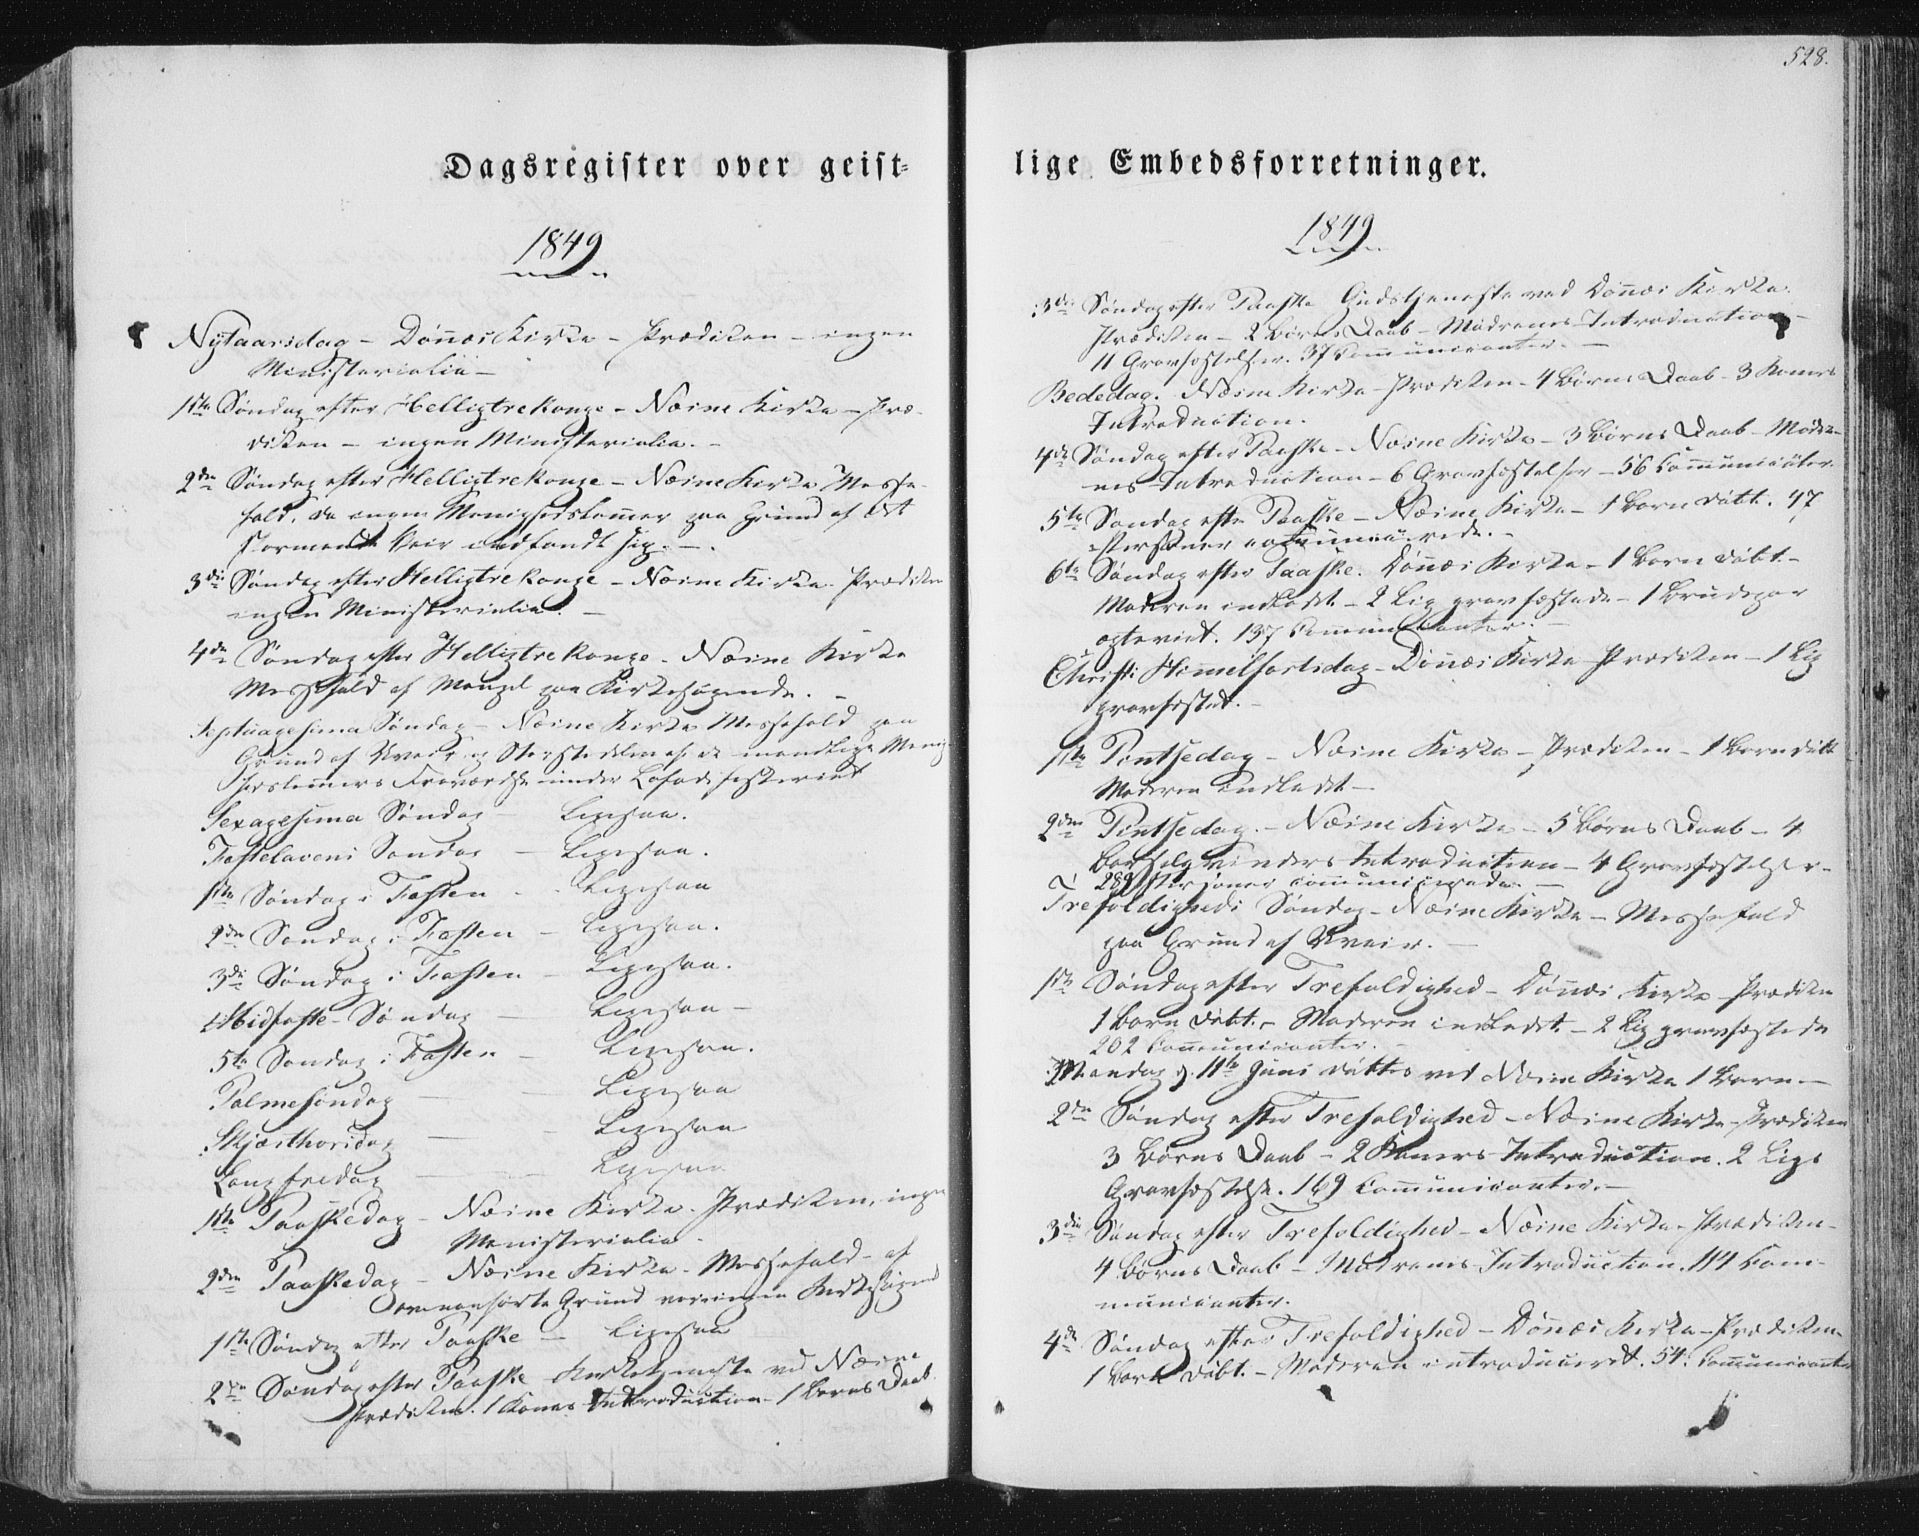 528.
Dagsregister over geist-
lige Embedsforretninger.
1849
Nytaarsdag - Dønnæs Kirke - Prædiken - ingen
Ministerialia -
1ste Søndag efter Helligtrekonge - Næsne Kirke - Præ-
diken - ingen Ministerialia. -
2den Søndag efter Helligtrekonge - Næsne Kirke Messe-
fald, da ingen Menighedslemmer paa Grund af det
stormende Veir indfandt sig. -
3die Søndag efter Helligtrekonge - Næsne Kirke. Prædiken
ingen Ministerialia. -
4de Søndag efter Helligtrekonge - Næsne Kirke
Messefald af Mangel paa Kirkesøgende. -
Septuagesima Søndag - Næsne Kirke Messefald paa
Grund af Uveir og Størstedelen af de mandlige Menig-
hedslemmers Fraværelse under Lofodfiskeriet
Sexagesima Søndag - Ligesaa.
Fastelavens Søndag - Ligesaa.
1ste Søndag i Fasten - Ligesaa
2den Søndag i Fasten - Ligesaa.
3die Søndag i Fasten - Ligesaa.
Midfaste-Søndag - Ligesaa -
5te Søndag i Fasten - Ligesaa.
Palmesøndag - Ligesaa
Skjærthorsdag - Ligesaa
Langfredag - Ligesaa
1ste Paaskedag - Næsne Kirke. Prædiken, ingen
Ministerialia -
2den Paaskedag - Næsne Kirke - Messefald - af
ovenanførte Grund Kirkesøgende
1ste Søndag efter Paaske - Ligesaa
2den Søndag efter Paaske Kirketjeneste ved Næsne
Prædiken. 1 Kones Introduction - 1 Barns Daab.
1849
3die Søndag efter Paaske Gudstjeneste ved Dønnæs Kirke.
Prædiken - 2 Børns Daab - Mødrenes Introduction -
11 Gravfæstelser. 37 Communicanter. -
Bededag. Næsne Kirke - Prædiken - 4 Børns Daab - 3 Koners
Introduction.
4de Søndag efter Paaske - Næsne Kirke - 3 Børns Daab - Mødre-
nes Introduction - 6 Gravfæstelser - 56 Communicanter
5te Søndag efter Paaske - Næsne Kirke - 1 Barn døbt. 47
Personer communicerede. -
6te Søndag efter Paaske. Dønnæs Kirke - 1 Barn døbt. -
Moderen indledt - 2 Lig gravfæstede - 1 Brudepar
ægteviet. 137 Communicanter. -
Christi Himmelfartsdag - Dønnæs Kirke - Prædiken - 1 Lig
gravfæstet. -
1ste Pintsedag - Næsne Kirke - Prædiken - 1 Barn døbt
Moderen indledt -
2den Pintsedag. - Næsne Kirke - 5 Børns Daab - 4
Barselqvinders Introduction - 4 Gravfæstelser -
289 Personer communicerede. -
Trefoldigheds Søndag - Næsne Kirke - Messefald
paa Grund af Uveir. -
1ste Søndag efter Trefoldighed - Dønnæs Kirke - Prædiken
1 Barn døbt. - Moderen indledt - 2 Lig gravfæstede
202 Communicanter. -
Mandag d. 11te Juni døbtes ved Næsne Kirke 1 Barn. -
2den Søndag efter Trefoldighed - Næsne Kirke - Prædiken
3 Børns Daab - 2 Koners Introduction. 2 Ligs
Gravfæstelse. 169 Communicanter. -
3die Søndag efter Trefoldighed - Næsne Kirke - Prædiken -
4 Børns Daab - Mødrenes Introduction. 114 Com-
municanter.
4de Søndag efter Trefoldighed - Dønnæs Kirke - Prædiken
1 Barn døbt. - Moderen introduceret. 54. Communicanter